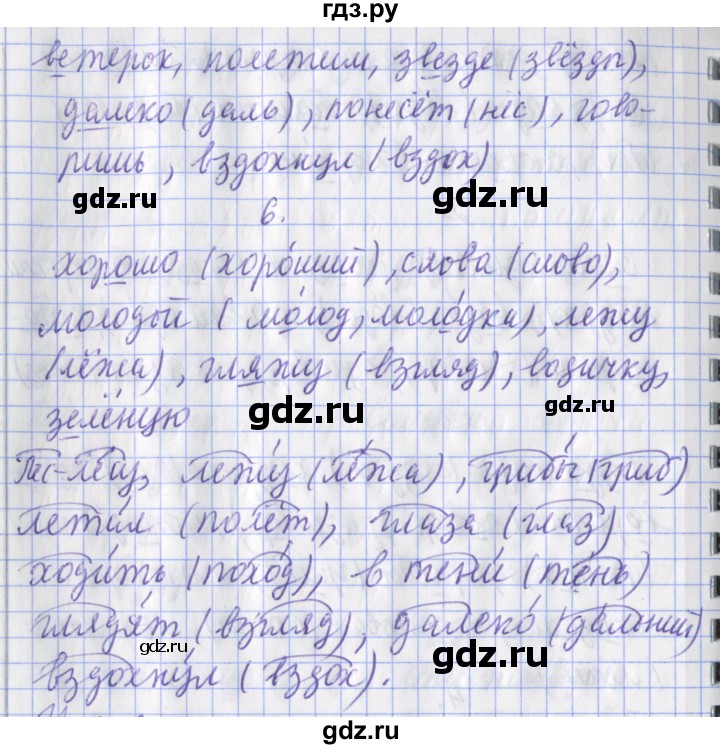 гдз.ру
ветерок, полетим, звезде (звёзды),
далеко (даль), понесёт (нёс), гово-
ришь, вздохнул (вздох)
gdz.ru gdz.ru
6.
хорошо (хоро́ший), слова (слово),
молодой (мо́лод, моло́дка), лежу
(лёжа), гляжу (взгляд), водичку,
зелёную
gdz.ru gdz.ru
Лес-лесу, лежу́ (лёжа), грибы́ (гриб)
лети́л (полёт), глаза (глаз)
ходи́ть (похо́д), в тени́ (те́нь)
глядя́т (взгляд), далеко́ (да́льний)
gdz.ru gdz.ru
вздохну́л (вздох).
gdz.ru